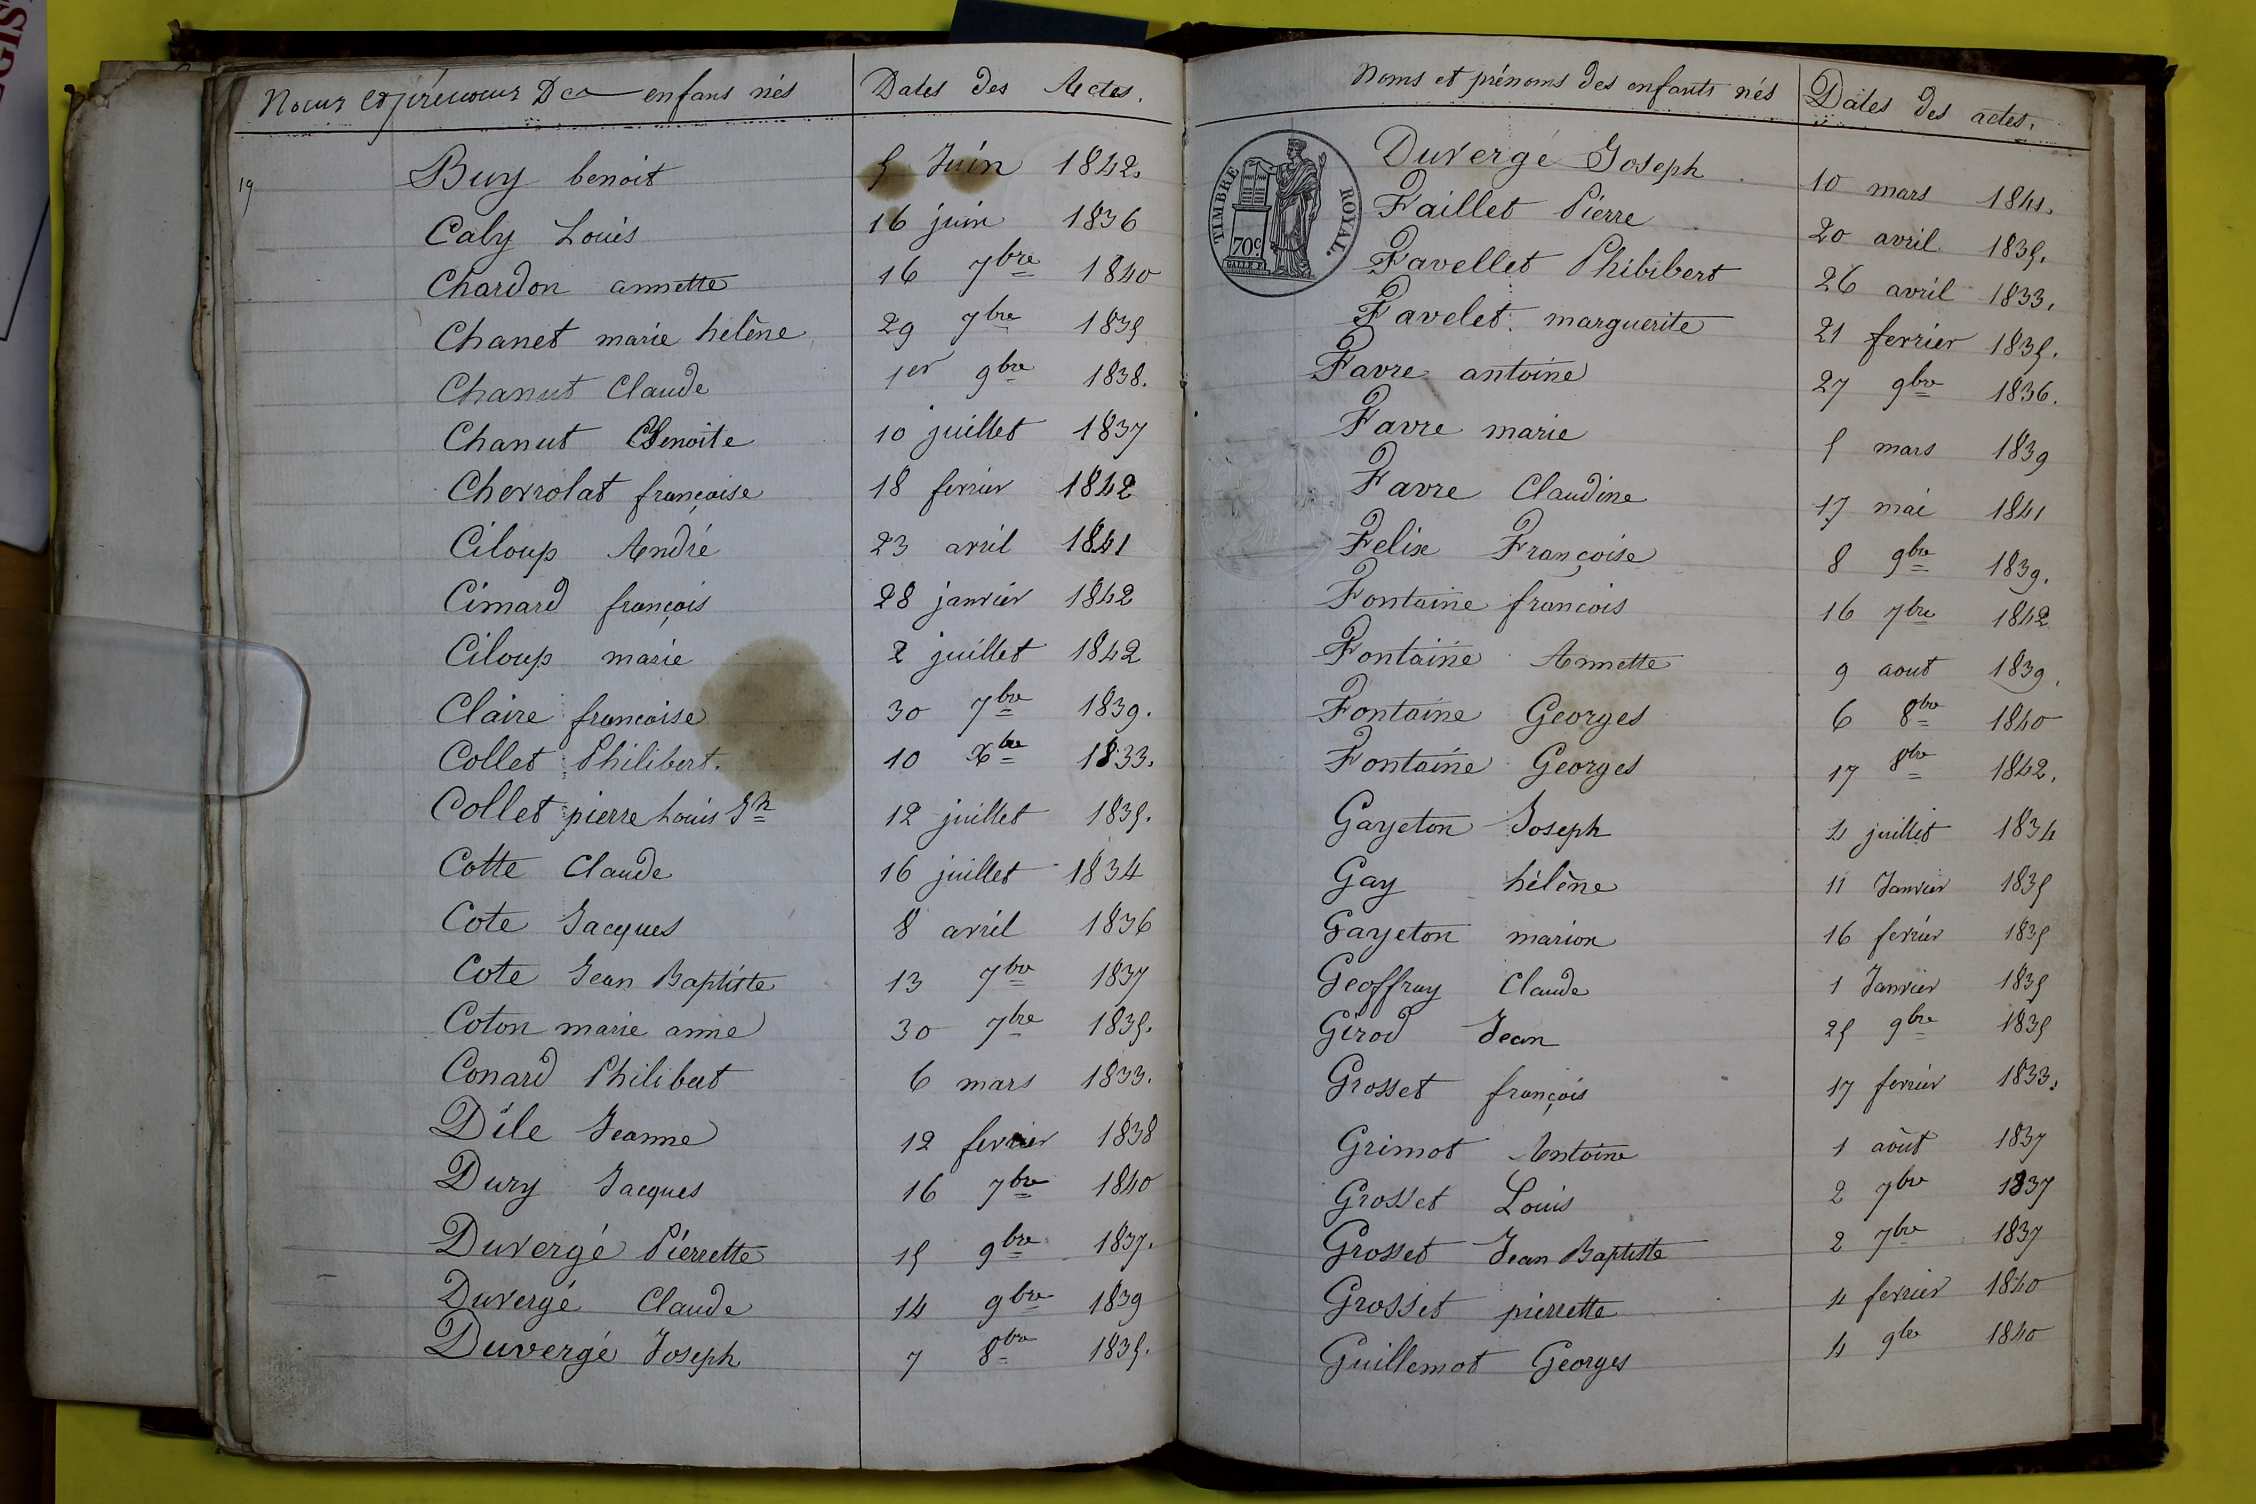 Noms et prénoms Des enfans nés Dates des Actes.
19 Buy benoit 5 Juin 1842.
Caly Louis 16 juin 1836
Chardon annette 16 7bre 1840
Chanet marie hélène 29 7bre 1835
Chanut Claude 1er 9bre 1838.
Chanut Benoite 10 juillet 1837
Chevrolat françoise 18 fevrier 1842
Ciloup André 23 avril 1841
Cimard françois 28 janvier 1842
Ciloup marie 2 juillet 1842
Claire francoise 30 7bre 1839.
Collet Philibert. 10 Xbre 1833.
Collet pierre Louis Jh 12 juillet 1835.
Cotte Claude 16 juillet 1834
Cote Jacques 8 avril 1836
Cote Jean Baptiste 13 7bre 1837
Coton marie anne 30 7bre 1835.
Conard Philibert 6 mars 1833.
Dile Jeanne 12 fevrier 1838
Dury Jacques 16 7bre 1840
Duvergé Pierrette 15 9bre 1837.
Duvergé Claude 14 9bre 1839
Duvergé Joseph 7 8bre 1835.
Noms et prénoms des enfants nés Dates des actes.
TIMBRE ROYAL.
70c.
Duvergé Joseph 10 mars 1841.
Faillet Pierre 20 avril 1835.
Favellet Phibibert 26 avril 1833.
Favelet marguerite 21 fevrier 1835.
Favre antoine 27 9bre 1836.
Favre marie 5 mars 1839
Favre Claudine 17 mai 1841
Felix Françoise 8 9bre 1839.
Fontaine françois 16 7bre 1842
Fontaine Annette 9 aout 1839.
Fontaine Georges 6 8bre 1840
Fontaine Georges 17 8bre 1842.
Gayeton Joseph 4 juillet 1834
Gay hélène 11 Janvier 1835
Gayeton marion 16 fevrier 1835
Geoffray Claude 1 Janvier 1835
Girod Jean 25 9bre 1835
Grosset françois 17 fevrier 1833.
Grimot Antoine 1 août 1837
Grosset Louis 2 7bre 1837
Grosset Jean Baptiste 2 7bre 1837
Grosset pierrette 4 fevrier 1840
Guillemot Georges 4 9bre 1840